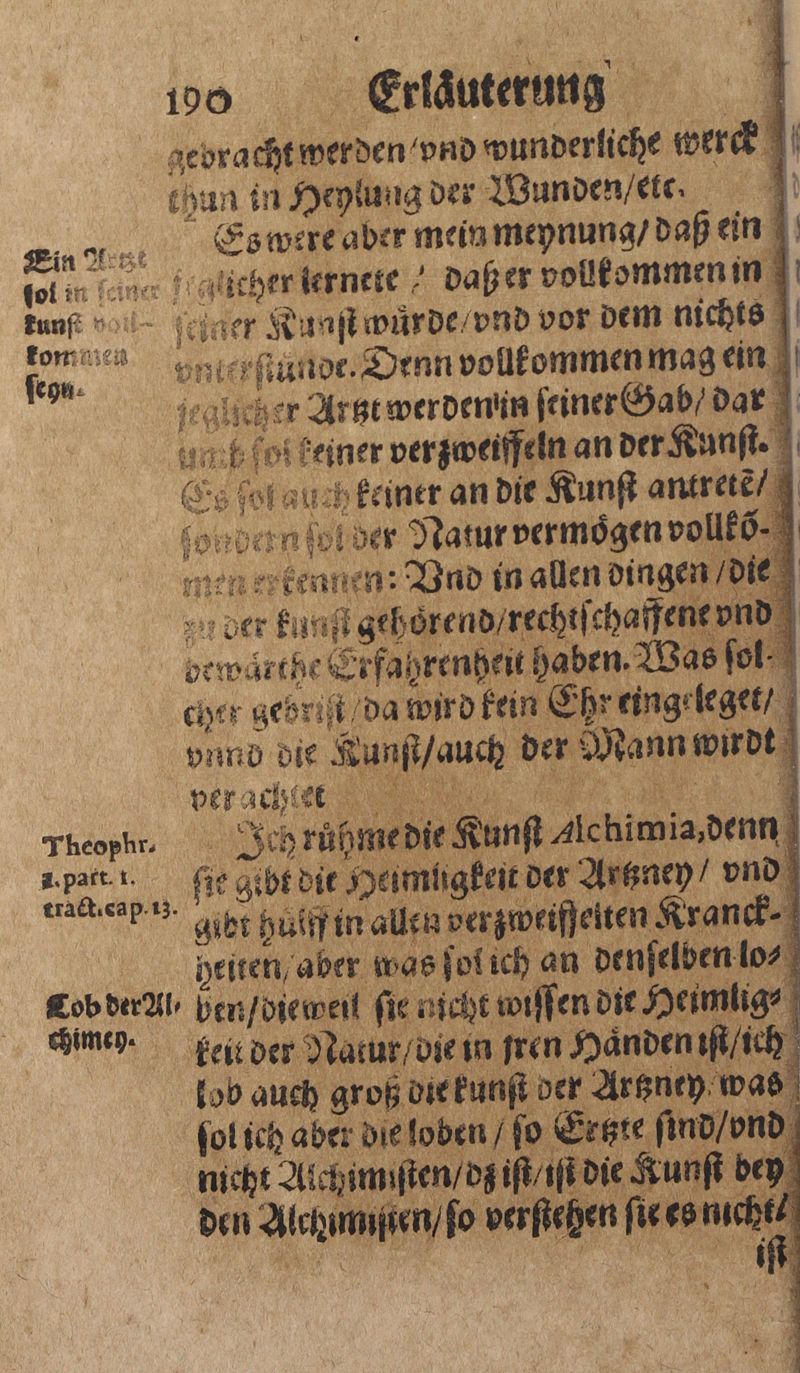 190 Erläuterung
gebracht werden/vnd wunderliche werck
thun in Heylung der Wunden/etc.
Es were aber mein meynung/daß ein
jeglicher lernete / daß er vollkommen in
seiner Kunst würde/vnd vor dem nichts
vnterstünde. Denn vollkommen mag ein
jeglicher Artzt werden in seiner Gab/ dar
umb sol keiner verzweiffeln an der Kunst.
Es sol auch keiner an die Kunst antretẽ/
sondern sol der Natur vermögen vollkõ-
men erkennen: Vnd in allen dingen /die
zu der kunst gehörend/rechtschaffene vnd
bewärthe Erfahrenheit haben. Was sol-
cher gebrist/da wird kein Ehr eingeleget/
vnnd die Kunst/auch der Mann wirdt
verachtet
Ich rühme die Kunst Alchimia,denn
sie gibt die Heimligkeit der Artzney/ vnd
gibt hülff in allen verzweiffelten Kranck-
heiten/aber was sol ich an denselben lo-
ben/dieweil sie nicht wissen die Heimlig-
keit der Natur/die in jren Händen ist/ich
lob auch groß die kunst der Artzney/was
sol ich aber die loben / so Ertzte sind/vnd
nicht Alchimisten/dz ist/ist die Kunst bey
den Alchimisten/so verstehen sie es nicht/
ist
Ein Artzt
sol in seiner
kunst voll-
kommen
seyn.
Theophr.
2. part. 1.
tract.cap.13.
Lob der Al-
chimey.